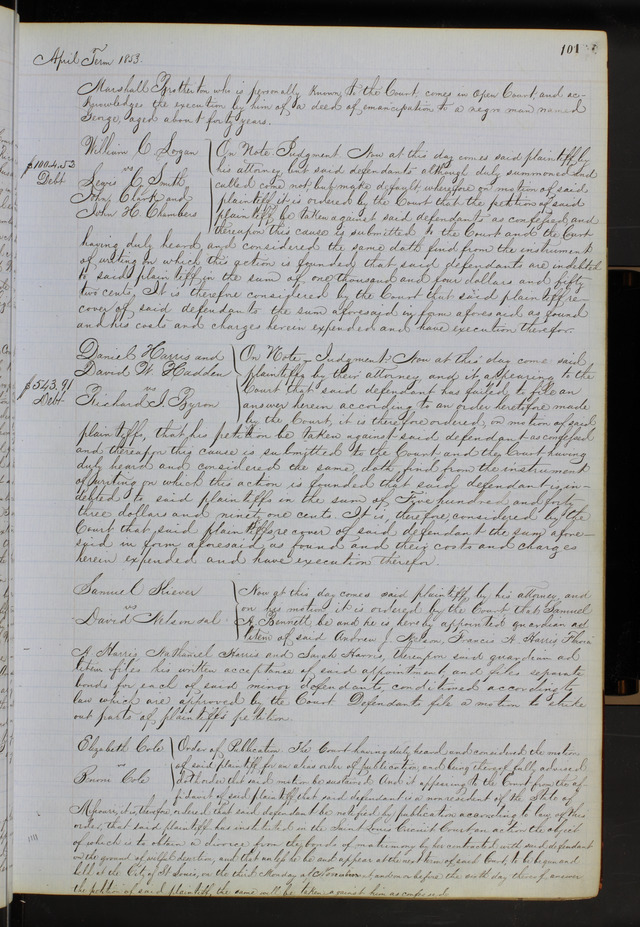 101
April Term 1853.
Marshall Brotherton who is personally known to the Court, comes in open Court, and ac-
knowledges the execution by him of a deed of emancipation to a negro man named
George, aged about forty years.
William C. Logan
vs
Lewis C. Smith
John Clark and
John H. Chambers
$1004.52
Debt
On Note. Judgment. Now at this day comes said plaintiff by
his attorney, but said defendants although duly summoned and
called come not, but make default, wherefore on motion of said
plaintiff it is ordered by the Court that the petition of said
plaintiff be taken against said defendants as confessed, and
thereupon this cause is submitted to the Court and the Court
having duly heard and considered the same doth find from the instrument
of writing on which this action is founded, that said defendants are indebted
to said plaintiff in the sum of one thousand and four dollars and fifty
two cents. It is therefore considered by the Court that said plaintiff re-
cover of said defendants the sum aforesaid in form aforesaid as found
and his costs and charges herein expended and have execution therefor.
Daniel Harris and
David W. Hadden
vs
Richard J. Byron
$543.91
Debt
On Note. Judgment. Now at this day come said
plaintiffs by their attorney and it appearing to the
Court that said defendant has failed to file an
answer herein according to an order heretofore made
by the Court, it is therefore ordered, on motion of said
plaintiffs, that his petition be taken against said defendant as confessed
and thereupon this cause is submitted to the Court and the Court having
duly heard and considered the same, doth find from the instrument
of writing on which this action is founded that said defendant is in-
debted to said plaintiffs in the sum of Five hundred and forty
three dollars and ninety one cents. It is, therefore, considered by the
Court that said plaintiffs recover of said defendant the sum afore-
said in form aforesaid as found and their costs and charges
herein expended and have execution therefor.
Samuel
vs
David Nelson et al.
Now at this day comes said plaintiff, by his attorney, and
on his motion it is ordered by the Court that Samuel
A. Bennett be and he is hereby appointed guardian ad
litem of said Andrew J. Nelson, Francis A. Harris,
A. Harris Nathaniel Harris and Sarah Harris, thereupon said guardian ad
litem files his written acceptance of said appointment, and files separate
bonds for each of said minor defendants, conditioned according to
law which are approved by the Court. Defendants file a motion to strike
out parts of plaintiffs petition.
Elizabeth Cole
vs
Cole
Order of Publication. The Court having duly heard and considered the motion
of said plaintiff for an alias order of publication, and being thereof fully advised
doth order that said motion be sustained. And it appearing to the Court from the af-
fidavit of said plaintiff that said defendant is a nonresident of the State of
Missouri it is, therefore, ordered that said defendant be notified by publication according to law, of this
order, that said plaintiff has instituted in the Saint Louis Circuit Court an action the object
of which is to obtain a divorce from the bonds of matrimony by her contracted with said defendant
on the ground of wilful desertion, and that unless he be and appear at the next term of said Court, to be begun and
held at the City of St. Louis, on the third Monday of November next, and on or before the sixth day thereof, answer
the petition of said plaintiff, the same will be taken against him as confessed.